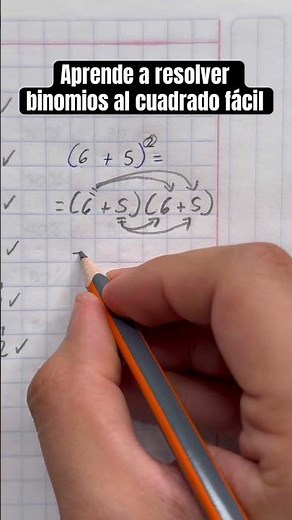 Aprende a resolver
binomios al cuadrado fácil
(6 + 5)² =
= (6 + 5)(6 + 5)